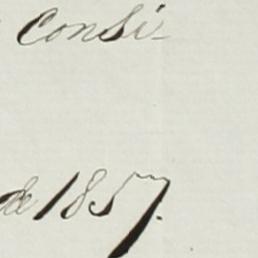 Consi-
de 1857.